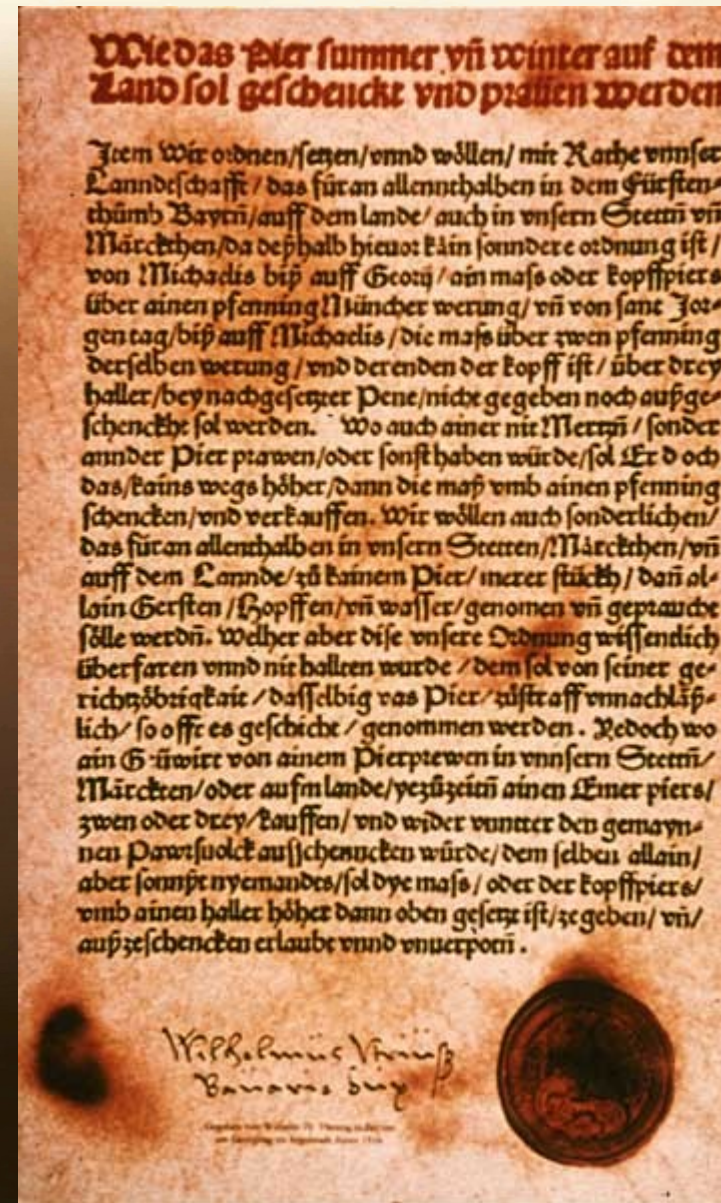 Wie das Pier summer vñ winter auf dem
Land sol geschenckt vnd prauen werden
Item Wir ordnen/setzen/vnnd wöllen/ mit Rathe vnnser
Lanndeschafft/ das füran allennthalben in dem Fürsten-
thümb Bayrñ/auff dem lande/ auch in vnsern Stettñ vñ
Märckthen/da deßhalb hieuor kain sonndere ordnung ist/
von Michaelis biß auff Georij/ain mass oder kopffpiers
über ainen pfenning Müncher werung/vñ von sant Jor-
gen tag/biß auff Michaelis/die mass über zwen pfenning
derselben werung/vnd derenden der kopff ist/über drey
haller/bey nachgesetzter Pene/nicht gegeben noch außge-
schenckht sol werden. Wo auch ainer nit Mertzñ/sonder
annder Pier prawen/oder sonst haben würde/sol Er d och
das/kains wegs höher/dann die maß vmb ainen pfenning
schencken/vnd verkauffen. Wir wöllen auch sonderlichen/
das füran allenthalben in vnsern Stetten/Märckthen/vñ
auff dem Lannde/zů kainem Pier/merer stückh/dañ al-
lain Gersten/Hopffen/vñ wasser/genomen vñ gepraucht
sölle werdñ. Welher aber dise vnsere Ordnung wissendlich
überfaren vnnd nit hallten wurde/dem sol von seiner ge-
richtzöbrigkait/dasselbig vas Pier/zůstraff vnnachläß-
lich/so offt es geschicht/genommen werden. Yedoch wo
ain G üwirt von ainem Pierprewen in vnnsern Stettñ/
Märckten/oder aufm lande/yezůzeitñ ainen Emer piers/
zwen oder drey/kauffen/vnd wider vnntter den gemayn-
nen Pawrsuolck ausschenncken würde/dem selben allain/
aber sonnßt nyemandes/sol dye mass/oder der kopffpiers/
vmb ainen haller höher dann oben gesetzt ist/ze geben/vñ/
außzeschencken erlaubt vnnd vnuerpotñ.
Wilhelmus